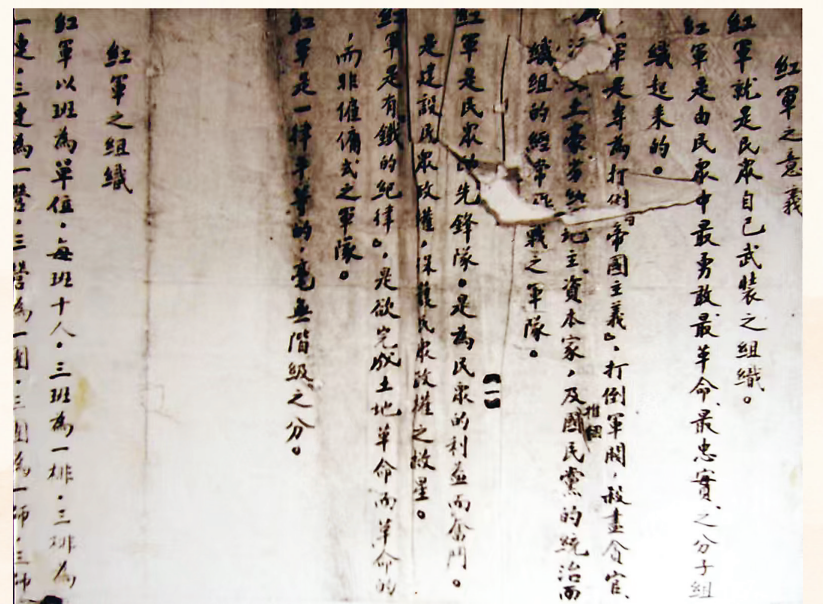 紅軍之意義
紅軍就是民眾自己武裝之組織。
紅軍是由民眾中最勇敢最革命、最忠實、之分子組
織起来的。
軍是専為打倒「帝國主義」，打倒軍閥，殺盡貪官、
土豪劣 地主、資本家，及推翻國民黨的統治而
織組的經常 戰之軍隊。
紅軍是民眾的先鋒隊。是為民眾的利益而奮鬥。
是建設民眾政權，保護民眾政權之救星。
【一】
紅軍是有「鐵的紀律」，是欲完成土地革命而革命的
而非僱傭式之軍隊。
紅軍是一律平等的，毫無階級之分。
紅軍之組織
紅軍以班為單位，每班十人。三班為一排，三排為
一連，三連為一營，三營為一團，三團為一師，三師